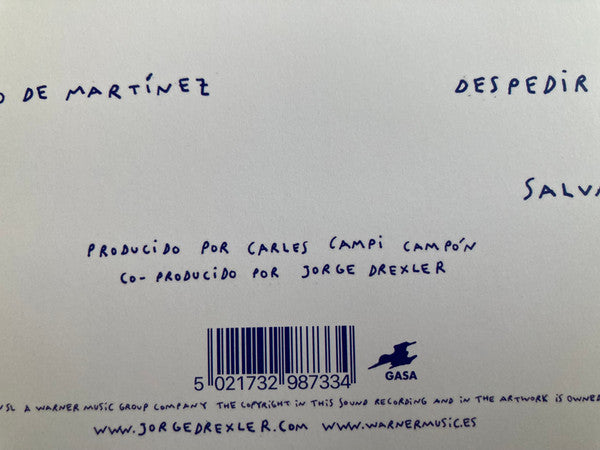 O DE MARTÍNEZ
DESPEDIR
SALVA
PRODUCIDO POR CARLES CAMPI CAMPÓN
CO-PRODUCIDO POR JORGE DREXLER
5 021732 987334
GASA
SL A WARNER MUSIC GROUP COMPANY THE COPYRIGHT IN THIS SOUND RECORDING AND IN THE ARTWORK IS OWNED
WWW.JORGEDREXLER.COM WWW.WARNERMUSIC.ES